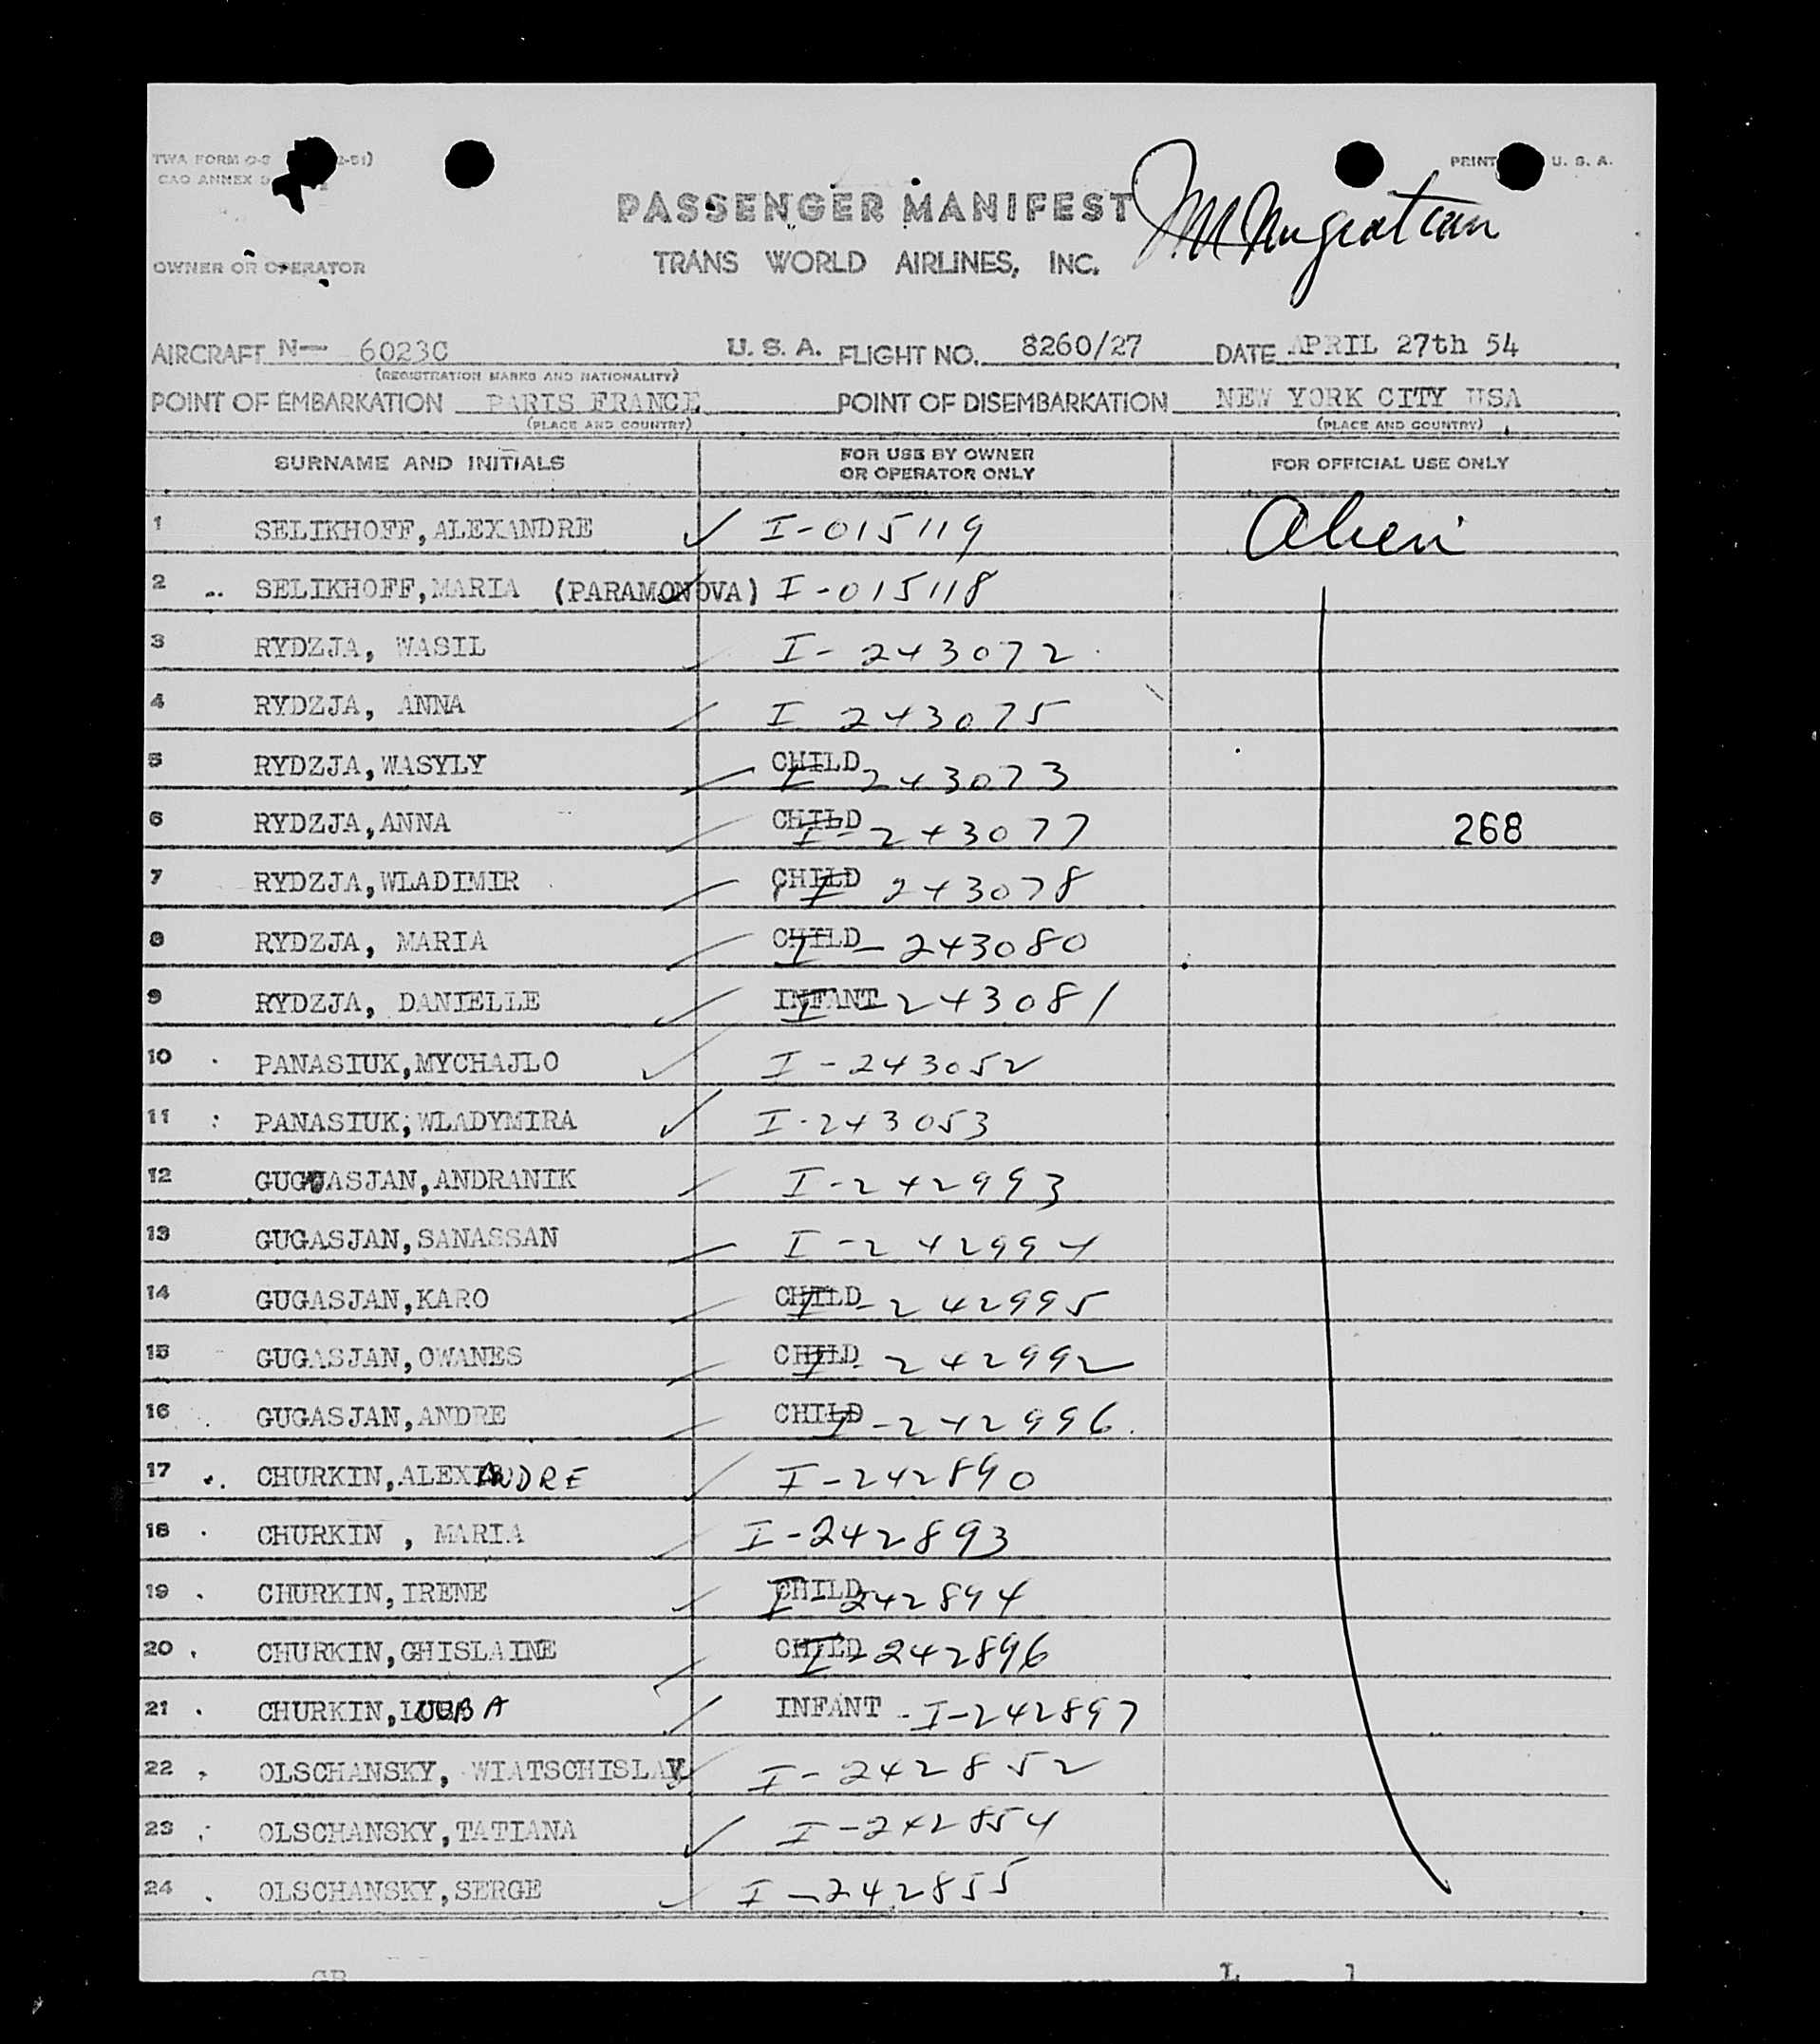 TWA FORM O-3 2-51)
PRINT U. S. A.
CAO ANNEX 9
PASSENGER MANIFEST
OWNER OR OPERATOR
TRANS WORLD AIRLINES, INC.
AIRCRAFT N— 6023C U. S. A. FLIGHT NO. 8260/27 DATE APRIL 27th 54
(REGISTRATION MARKS AND NATIONALITY)
POINT OF EMBARKATION PARIS FRANCE POINT OF DISEMBARKATION NEW YORK CITY USA
(PLACE AND COUNTRY) (PLACE AND COUNTRY)
SURNAME AND INITIALS FOR USE BY OWNER OR OPERATOR ONLY FOR OFFICIAL USE ONLY
1 SELIKHOFF,ALEXANDRE I-015119 Alien
2 SELIKHOFF,MARIA (PARAMONOVA) I-015118
3 RYDZJA, WASIL I-243072
4 RYDZJA, ANNA I 243075
5 RYDZJA,WASYLY CHILD I 243073
6 RYDZJA,ANNA CHILD I-243077 268
7 RYDZJA,WLADIMIR CHILD I 243078
8 RYDZJA, MARIA CHILD I-243080
9 RYDZJA, DANIELLE INFANT I-243081
10 PANASIUK,MYCHAJLO I-243052
11 PANASIUK,WLADYMIRA I-243053
12 GUGUASJAN,ANDRANIK I-242993
13 GUGASJAN,SANASSAN I-242994
14 GUGASJAN,KARO CHILD I-242995
15 GUGASJAN,OWANES CHILD I-242992
16 GUGASJAN,ANDRE CHILD I-242996
17 CHURKIN,ALEXANDRE I-242890
18 CHURKIN , MARIA I-242893
19 CHURKIN,IRENE CHILD I-242894
20 CHURKIN,GHISLAINE CHILD I-242896
21 CHURKIN,LUBA INFANT I-242897
22 OLSCHANSKY, WIATSCHISLAV I-242852
23 OLSCHANSKY,TATIANA I-242854
24 OLSCHANSKY,SERGE I-242855